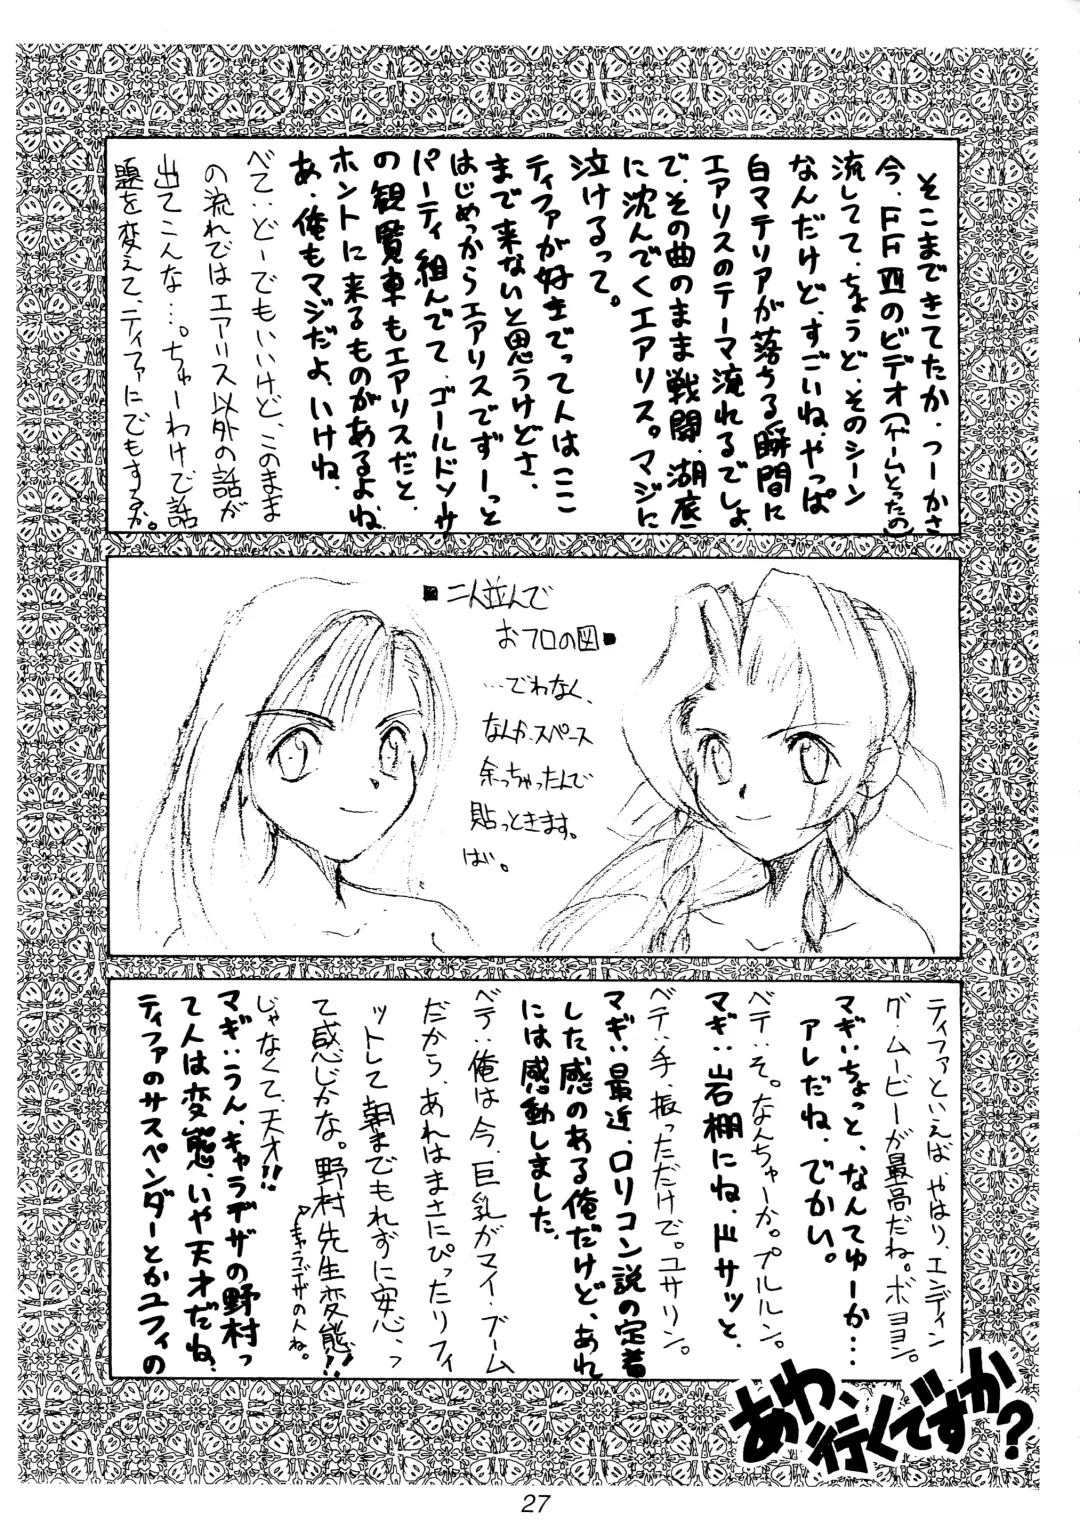 そこまできてたか。つーかさ
今、FFⅦのビデオ(ゲームとったの)
流してて、ちょうど、そのシーン
なんだけど、すごいね、やっぱ
白マテリアが落ちる瞬間に
エアリスのテーマ流れるでしょ
で、その曲のまま戦闘、湖底
に沈んでくエアリス。マジに
泣けるって。
ティファが好きでって人はここ
まで来ないと思うけどさ、
はじめっからエアリスでずーっと
パーティ組んでて、ゴールドソーサ
の観覧車もエアリスだと、
ホントに来るものがあるよね
あ、俺もマジだよ、いけね、
ベテ:どーでもいいけど、このまま
の流れではエアリス以外の話が
出てこんな…。ちゅーわけで話
題を変えて、ティファにでもするか。
■二人並んで
おフロの図■
…でわなく、
なんか、スペース
余っちゃったんで
貼っときます。
ば。
ティファといえば、やはり、エンディン
グ・ムービーが最高だね。ボヨヨン。
マギ:ちょっと、なんてゆーか…
アレだね、でかい。
ベテ:そ。なんちゃーか。プルルン。
マギ:岩棚にね、ドサッと、
ベテ:手、振っただけで。ユサリン。
マギ:最近、ロリコン説の定着
した感のある俺だけど、あれ
には感動しました。
ベテ:俺は今、巨乳がマイ・ブーム
だから、あれはまさにぴったりフィ
ットして朝までもれずに安心、っ
て感じかな。野村先生変態!!
↑キャラデザの人ね。
じゃなくて、天才!!
マギ:うん、キャラデザの野村っ
て人は変態、いや天才だね、
ティファのサスペンダーとかユフィの
あわ、行くですか?
27